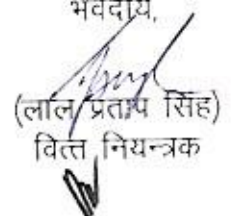 भवदीय,
(लाल प्रताप सिंह)
वित्त नियन्त्रक